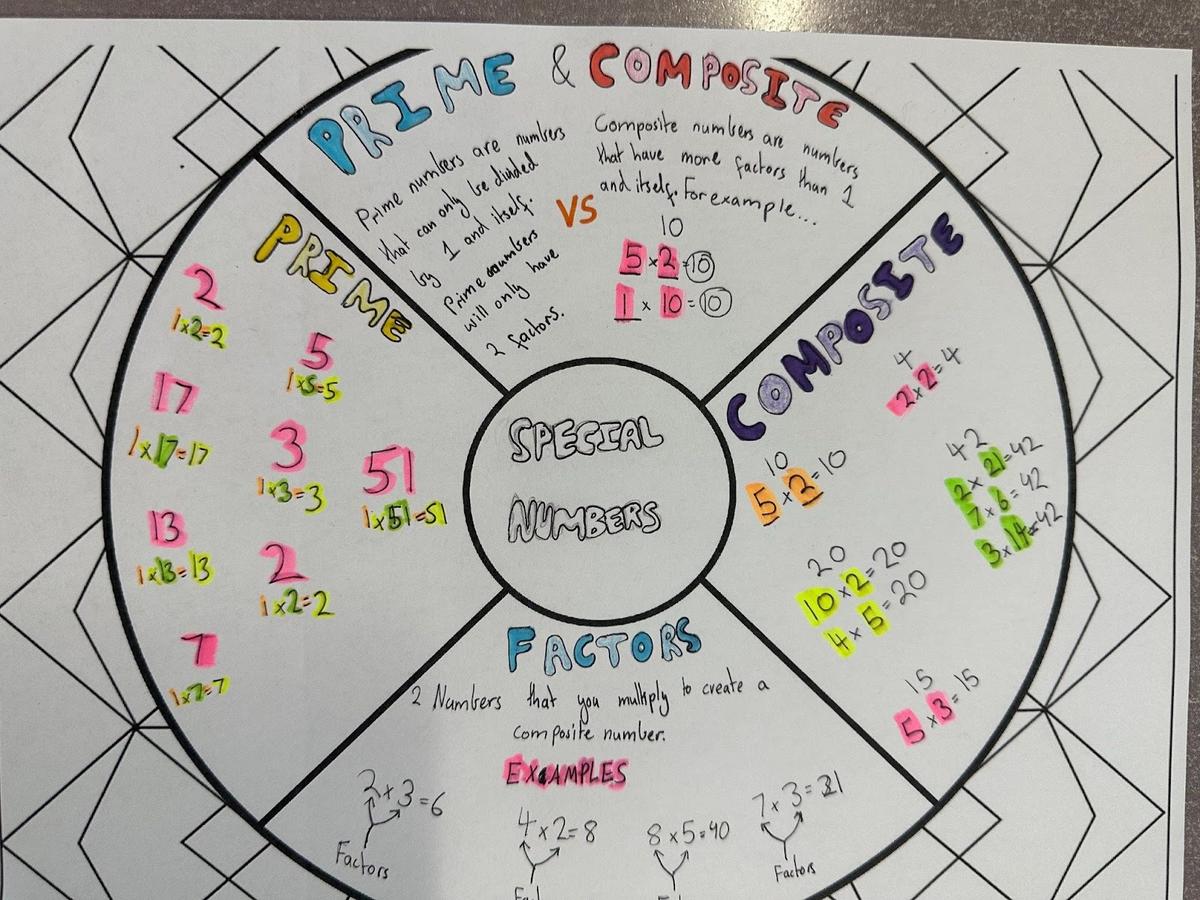 PRIME & COMPOSITE
Prime numbers are numbers
that can only be divided
by 1 and itself.
Prime numbers
will only have
2 factors.
VS
Composite numbers are numbers
that have more factors than 1
and itself. For example...
10
5 x 2 = 10
1 x 10 = 10
PRIME
2
1x2=2
5
1x5=5
17
1x17=17
3
1x3=3
51
1x51=51
13
1x13=13
2
1x2=2
7
1x7=7
COMPOSITE
4
2x2=4
10
5x2=10
42
2x21=42
7x6=42
3x14=42
20
10x2=20
4x5=20
15
5x3=15
SPECIAL
NUMBERS
FACTORS
2 Numbers that you multiply to create a
composite number.
EXAMPLES
2x3=6
Factors
4x2=8
8x5=40
7x3=21
Factors